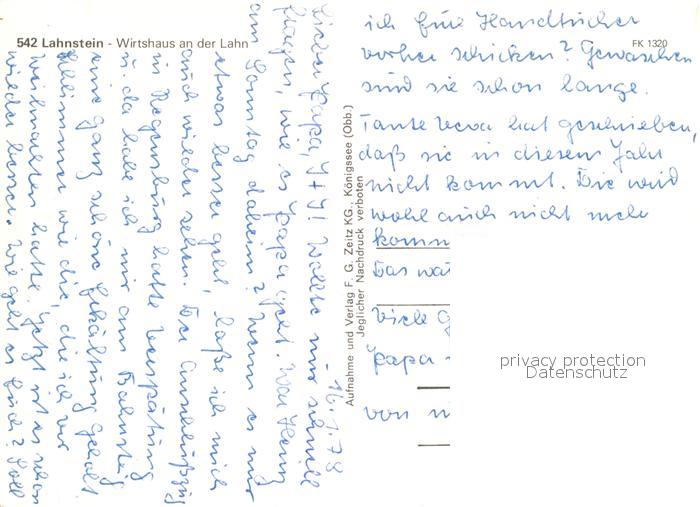 542 Lahnstein - Wirtshaus an der Lahn
FK 1320
Aufnahme und Verlag F. G. Zeitz KG., Königssee (Obb.)
Jeglicher Nachdruck verboten
16.1.78
Lieber Papa, Wollte nur schnell
fragen, wie es Papa geht. War Heinz
am Sonntag daheim? Wenn es nur
etwas besser geht, laße ich mich
auch wieder sehen. Der Anschlußzug
in Regensburg hatte Verspätung
u. da habe ich mir am Bahnsteig
eine ganz schöne Erkältung geholt.
Schlimmer wie die, die ich vor
Weihnachten hatte. Jetzt ist es schon
wieder besser. Wie geht es Euch? Soll
ich Eure Handtücher
vorher schicken? Gewaschen
sind sie schon lange.
Tante hat geschrieben,
daß sie in diesem Jahr
nicht kommt. Sie wird
wohl auch nicht mehr
komm
Das wä
Viele G
Papa -
von
privacy protection
Datenschutz